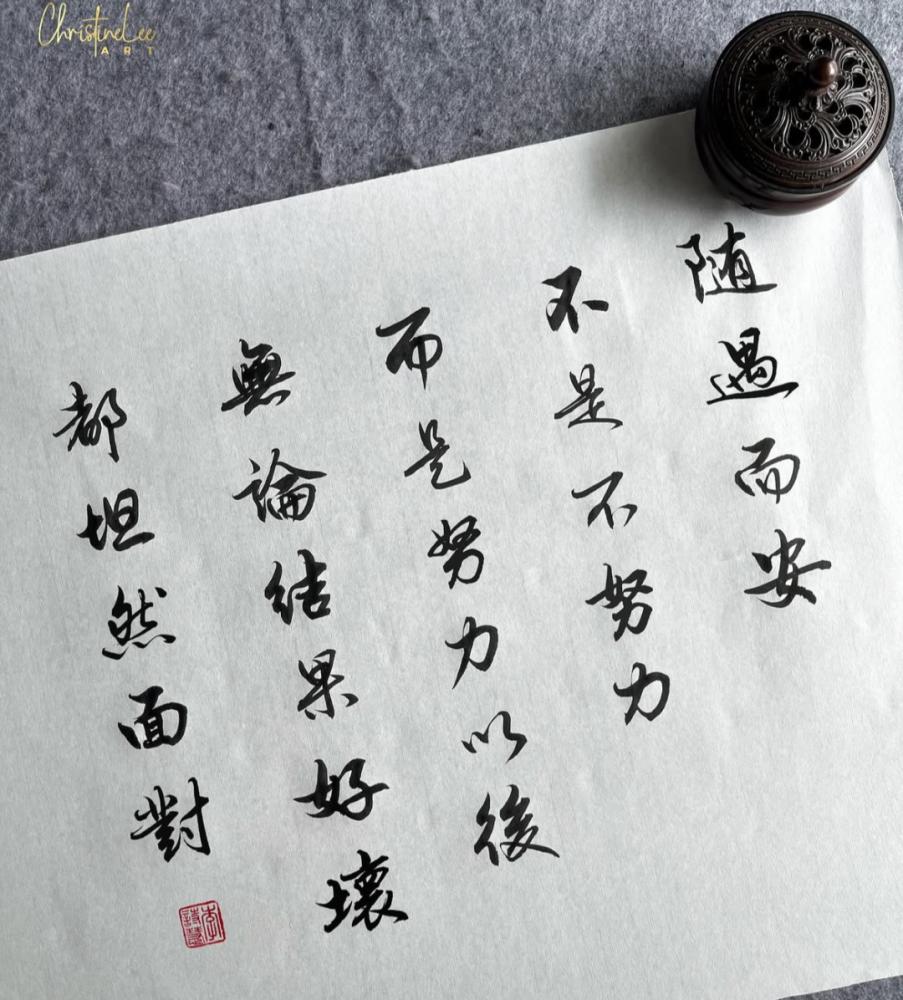 ChristineLee
ART
随遇而安
不是不努力
而是努力以後
無論結果好壞
都坦然面對